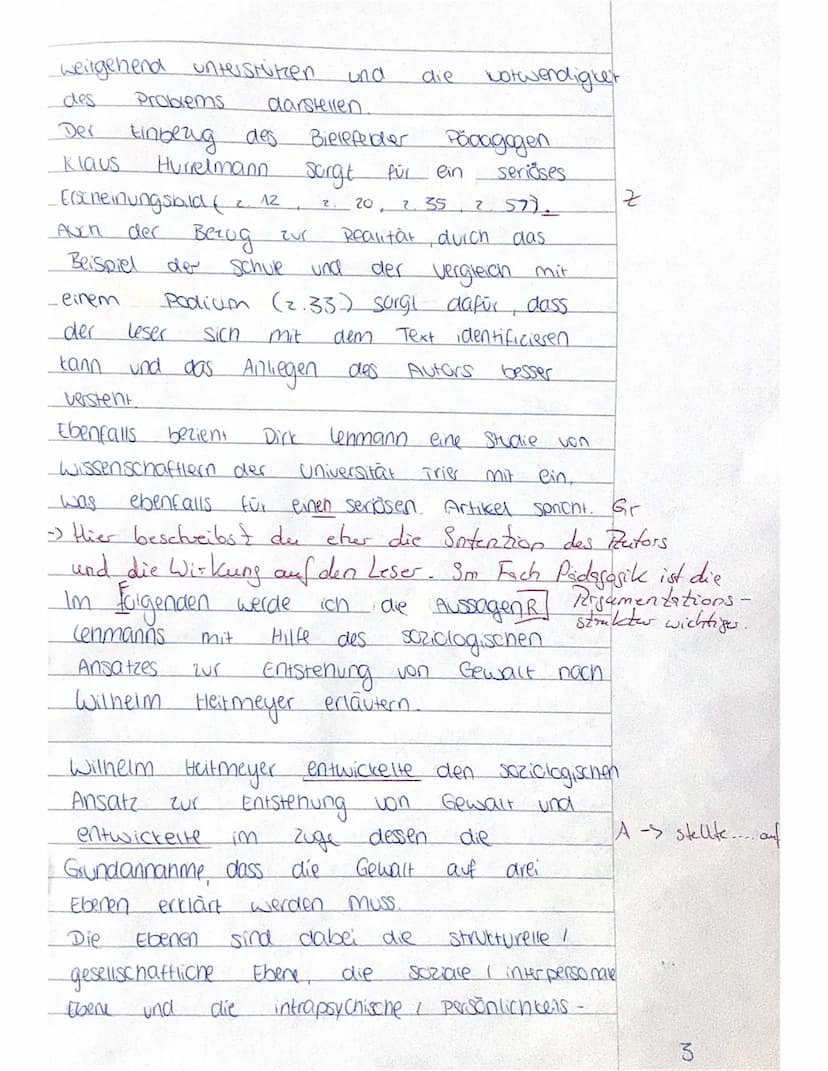 weitgehend unterstützen und die Notwendigkeit
des Problems darstellen.
Der Einbezug des Bielefelder Pädagogen
Klaus Hurrelmann sorgt für ein seriöses
Erscheinungsbild (Z. 12, Z. 20, Z. 35, Z. 57). Z
Auch der Bezug zur Realität, durch das
Beispiel der Schule und der Vergleich mit
einem Podium (Z.33) sorgt dafür, dass
der Leser sich mit dem Text identifizieren
kann und das Anliegen des Autors besser
versteht.
Ebenfalls bezieht Dirk Lehmann eine Studie von
Wissenschaftlern der Universität Trier mit ein,
was ebenfalls für einen seriösen Artikel spricht. Gr
-> Hier beschreibst du eher die Intention des Autors
und die Wirkung auf den Leser. Im Fach Pädagogik ist die
Argumentations-
struktur wichtiger.
Im Folgenden werde ich die Aussagen R
Lehmanns mit Hilfe des soziologischen
Ansatzes zur Entstehung von Gewalt nach
Wilhelm Heitmeyer erläutern.
Wilhelm Heitmeyer entwickelte den soziologischen
Ansatz zur Entstehung von Gewalt und
entwickelte im Zuge dessen die A -> stellte.....auf
Grundannahme, dass die Gewalt auf drei
Ebenen erklärt werden muss.
Die Ebenen sind dabei die strukturelle /
gesellschaftliche Ebene, die soziale / interpersonale
Ebene und die intrapsychische / Persönlichkeits-
3